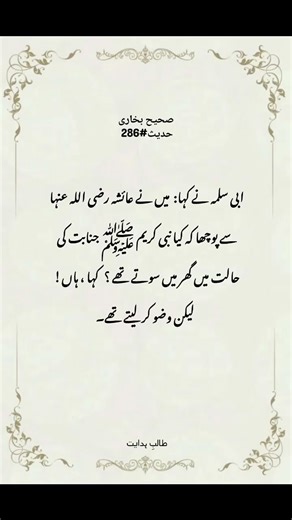 صحیح بخاری
حدیث#286
ابی سلمہ نے کہا: میں نے عائشہ رضی اللہ عنہا
سے پوچھا کہ کیا نبی کریم ﷺ جنابت کی
حالت میں گھر میں سوتے تھے؟ کہا، ہاں!
لیکن وضو کر لیتے تھے۔
طالب ہدایت